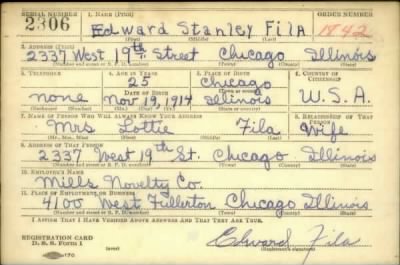 SERIAL NUMBER 1. NAME (Print) ORDER NUMBER
2306 Edward Stanley Fila 1842
(First) (Middle) (Last)
2. ADDRESS (Print)
2337 West 19th Street Chicago Illinois
(Number and street or R. F. D. number) (Town) (County) (State)
3. TELEPHONE 4. AGE IN YEARS 5. PLACE OF BIRTH 6. COUNTRY OF CITIZENSHIP
25 Chicago
none DATE OF BIRTH (Town or county)
Nov 19, 1914 Illinois U.S.A.
(Exchange) (No.) (Mo.) (Day) (Yr.) (State or country)
7. NAME OF PERSON WHO WILL ALWAYS KNOW YOUR ADDRESS 8. RELATIONSHIP OF THAT PERSON
Mrs Lottie Fila Wife
(Mr., Mrs., Miss) (First) (Middle) (Last)
9. ADDRESS OF THAT PERSON
2337 West 19th St. Chicago Illinois
(Number and street or R. F. D. number) (Town) (County) (State)
10. EMPLOYER'S NAME
Mills Novelty Co.
11. PLACE OF EMPLOYMENT OR BUSINESS
4100 West Fullerton Chicago Illinois
(Number and street or R. F. D. number) (Town) (County) (State)
I AFFIRM THAT I HAVE VERIFIED ABOVE ANSWERS AND THAT THEY ARE TRUE.
REGISTRATION CARD
D. S. S. Form 1 (over) Edward Fila
(Registrant's signature)